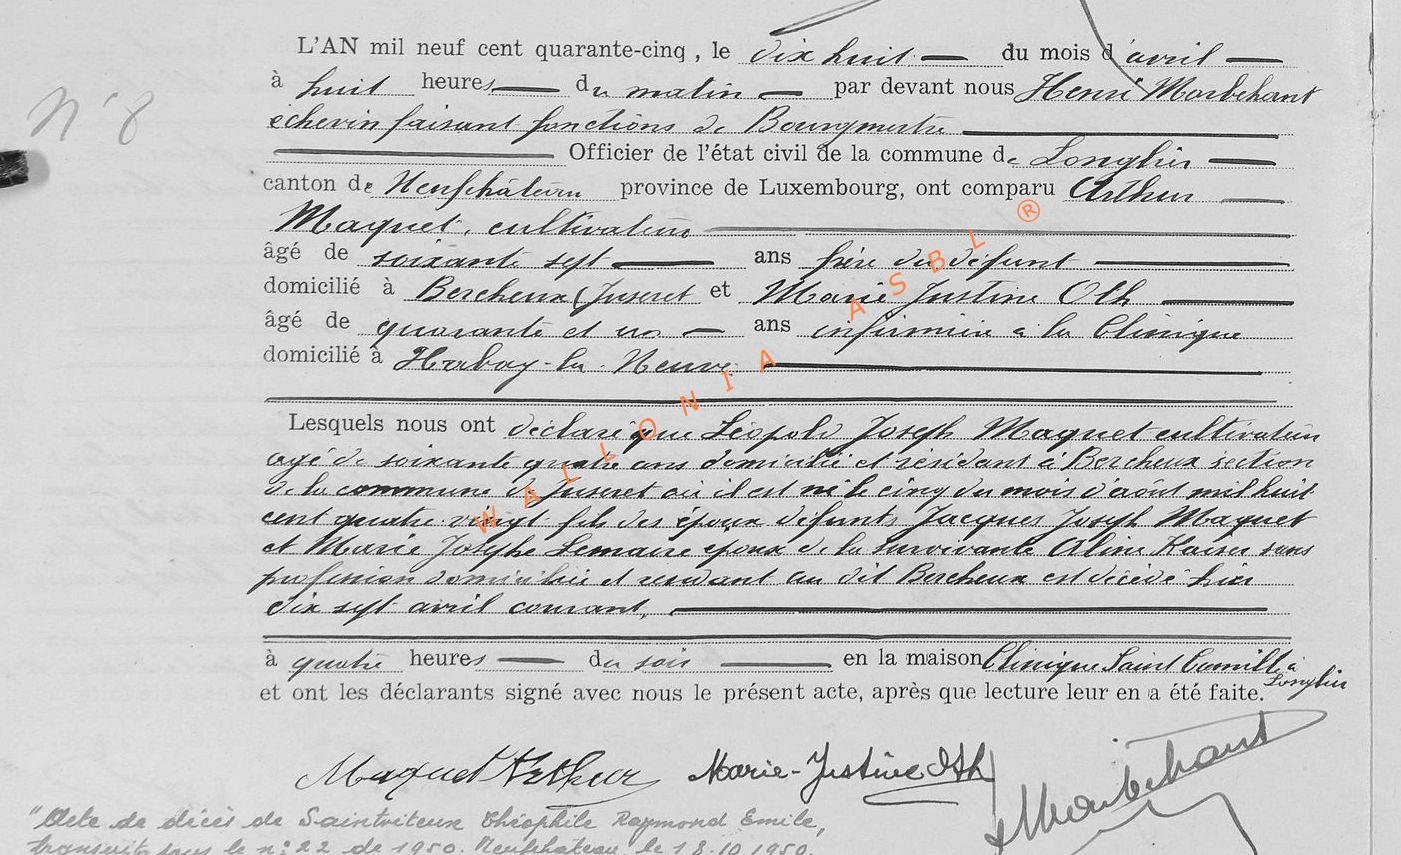 L'AN mil neuf cent quarante-cinq, le dix huit du mois d'avril
N° 8
à huit heures du matin par devant nous Henri Morbehant
échevin faisant fonctions de Bourgmestre
Officier de l'état civil de la commune de Longlier
canton de Neufchâteau province de Luxembourg, ont comparu Arthur
Maquet, cultivateur
âgé de soixante sept ans frère du défunt
domicilié à Bercheux (Juseret et Marie Justine Oth
âgé de quarante et un ans infirmière à la Clinique
domicilié à Habay-la-Neuve
Lesquels nous ont déclaré que Léopold Joseph Maquet cultivateur
agé de soixante quatre ans domicilié et résidant à Bercheux section
de la commune de Juseret où il est né le cinq du mois d'août mil huit
cent quatre-vingt fils des époux défunts Jacques Joseph Maquet
et Marie Josephe Lemaire époux de la survivante Aline Kaiser sans
profession domiciliée et résidant au dit Bercheux est décédé hier
dix sept avril courant,
à quatre heures du soir en la maison Clinique Saint Camille à
Longlier
et ont les déclarants signé avec nous le présent acte, après que lecture leur en a été faite.
Maquet Arthur Marie-Justine Oth Morbehant
"Acte de décès de Saintviteux Théophile Raymond Emile,
transcrit sous le n° 22 de 1950. Neufchâteau, le 18.10.1950.
WALLONIA ASBL ®